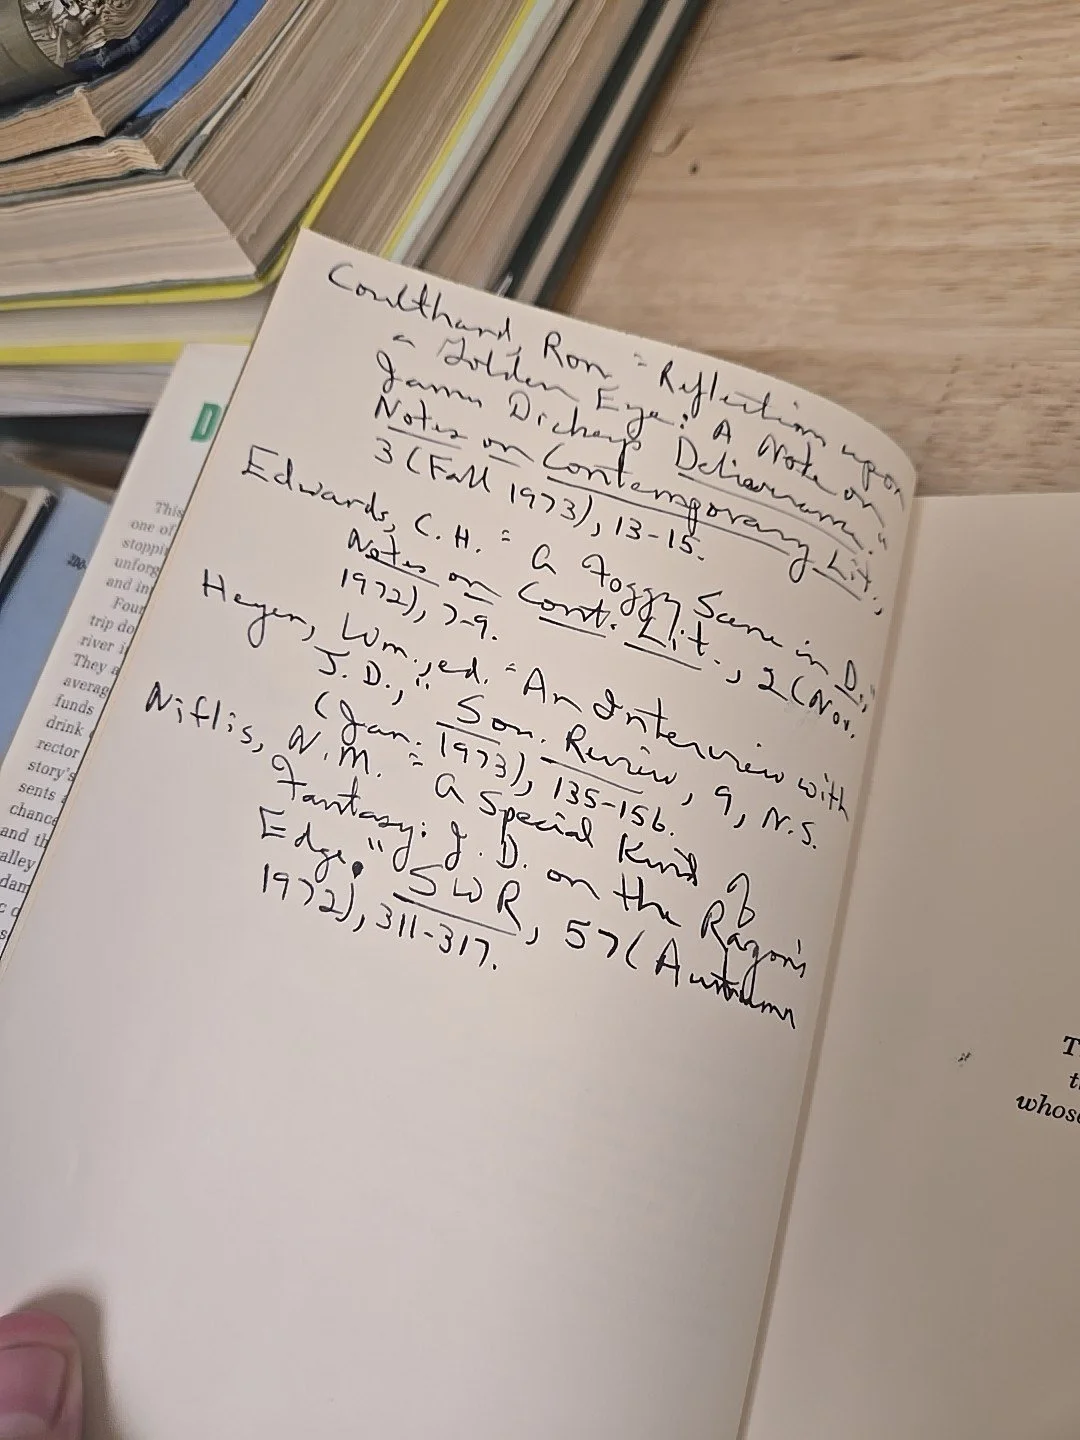 Coulthard, Ron "Reflections upon
a Golden Eye: A Note on
James Dickey's Deliverance."
Notes on Contemporary Lit.,
3 (Fall 1973), 13-15.
Edwards, C. H. "A Foggy Scene in D.,"
Notes on Cont. Lit., 2 (Nov.
1972), 7-9.
Heyen, Wm., ed. "An Interview with
J. D.," Sou. Review, 9, N.S.
(Jan. 1973), 135-156.
Niflis, N. M. "A Special Kind of
Fantasy: J. D. on the Razon's
Edge." SWR, 57 (Autumn
1972), 311-317.
D
This
one of
stoppi
unforg
and in
Four
trip do
river i
They a
averag
funds
drink
rector
story's
sents a
chance
and th
alley
dam
T
t
whose